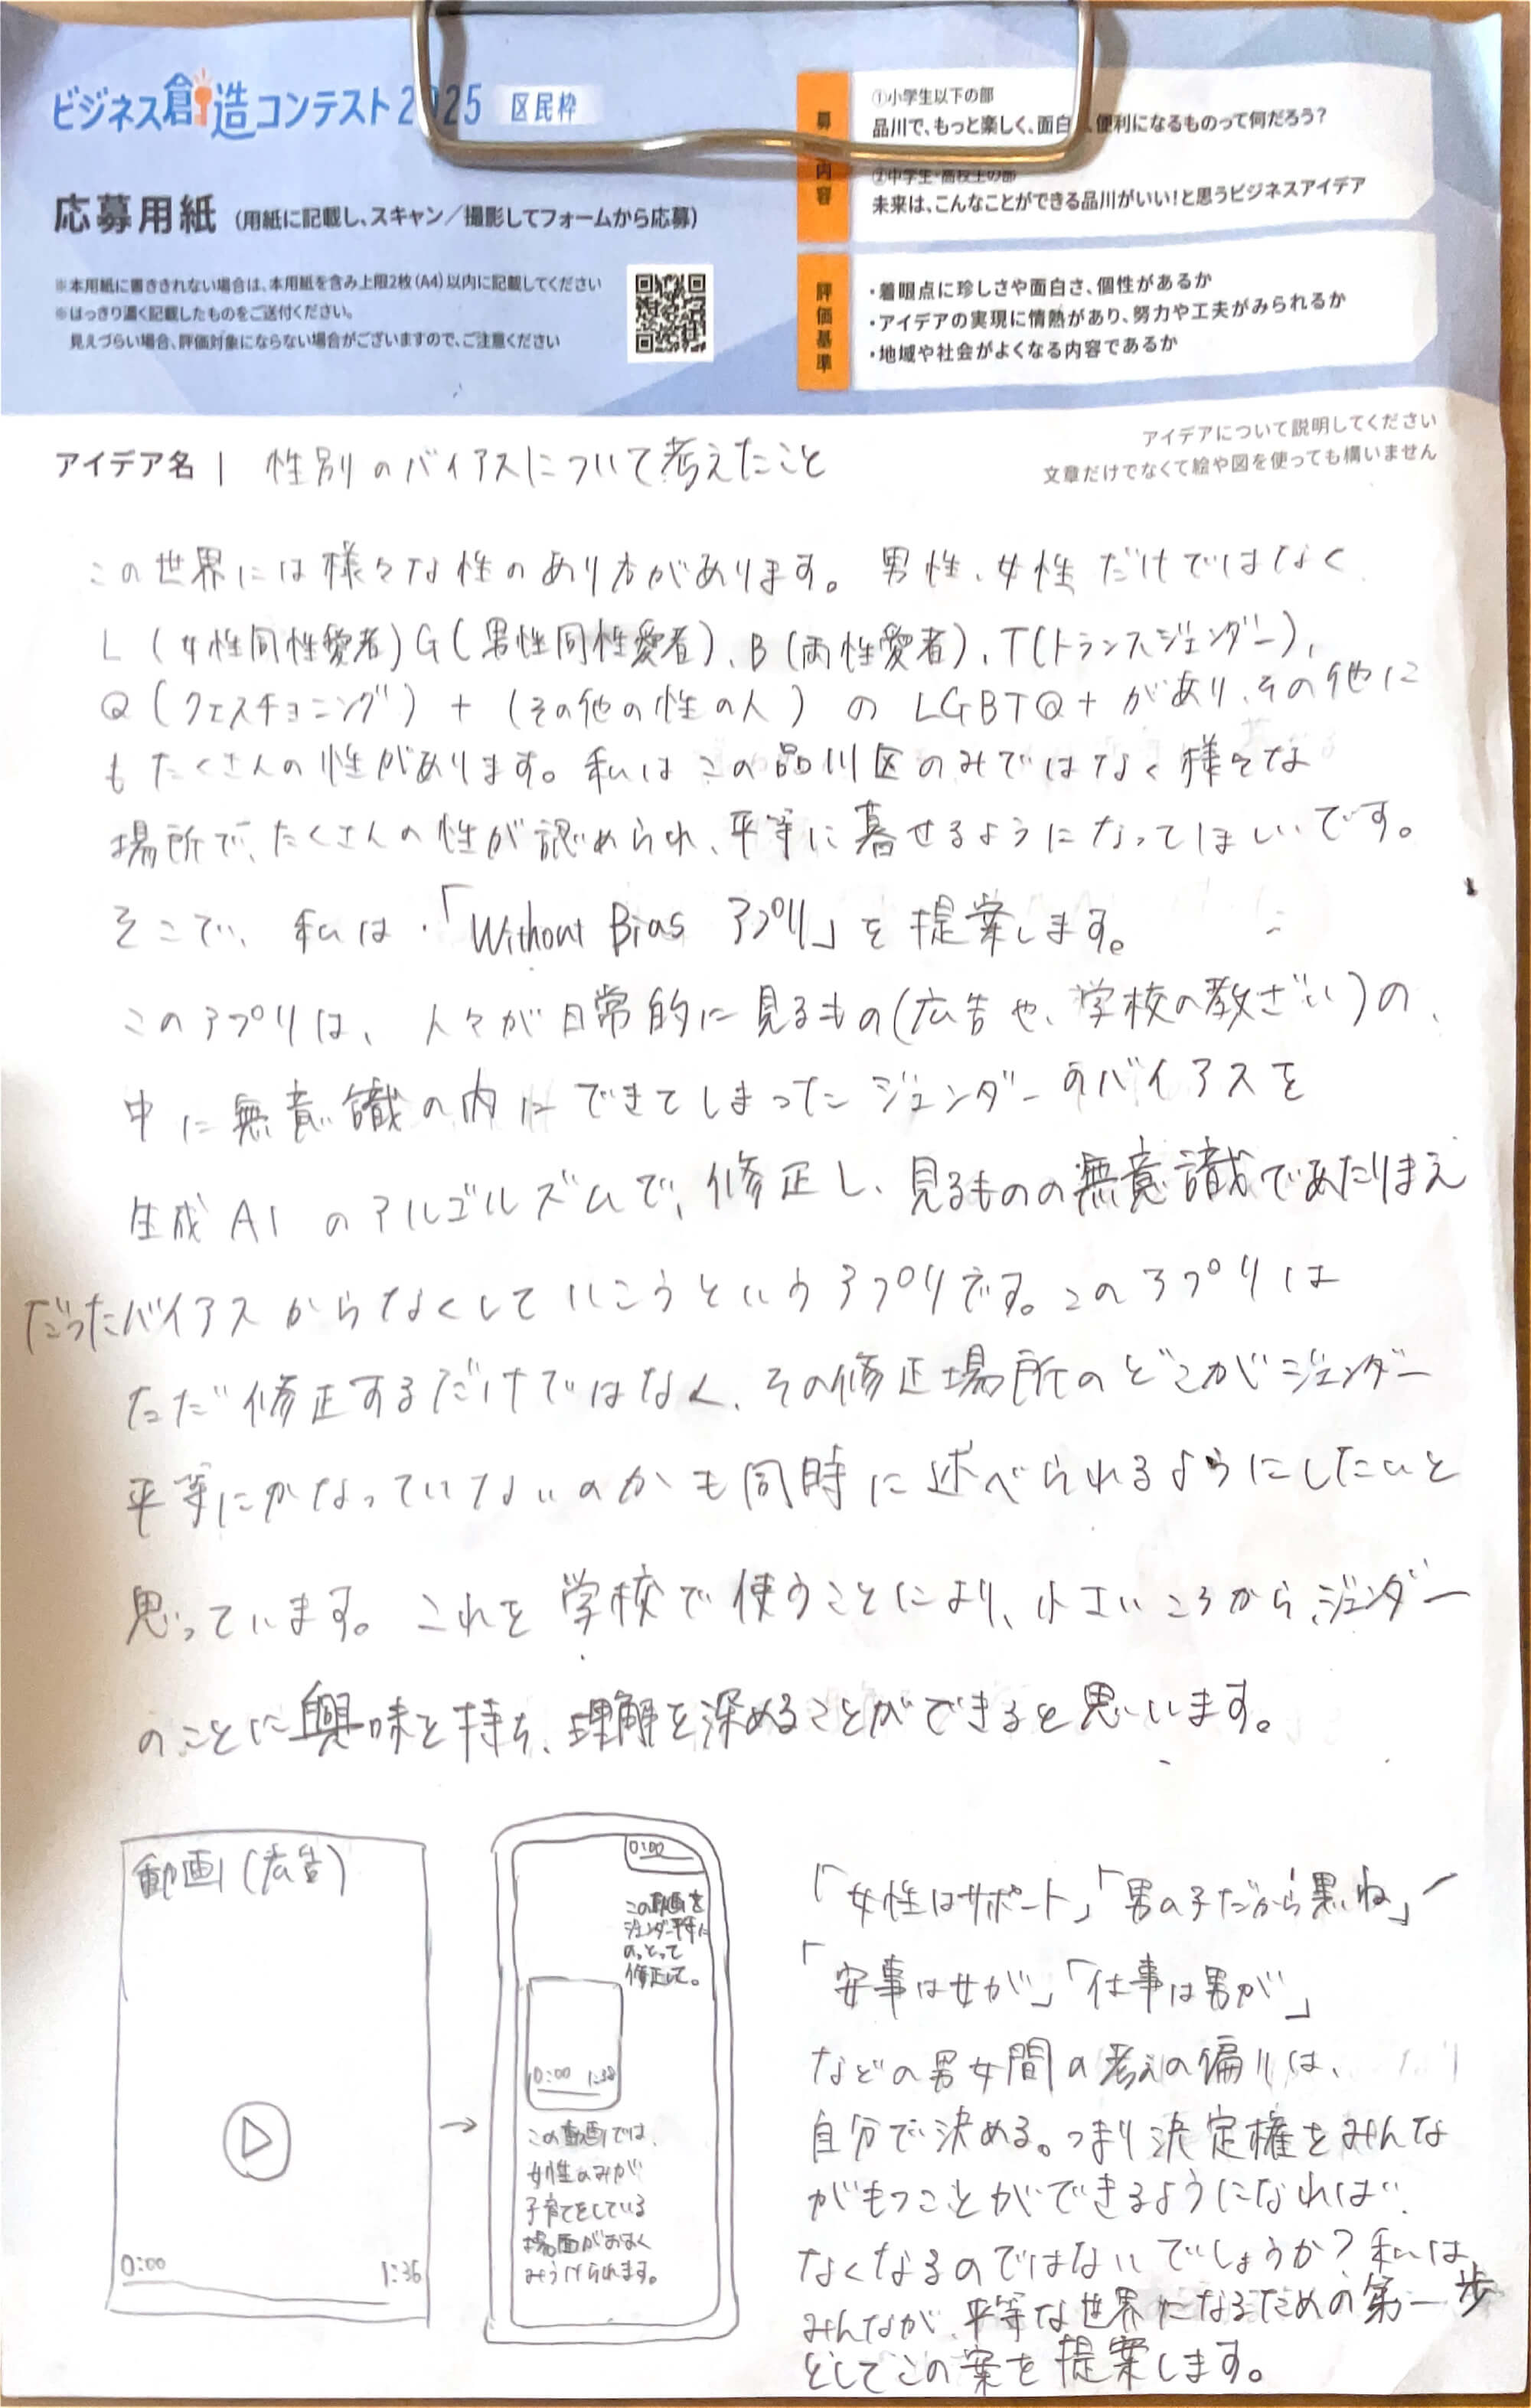 ビジネス創造コンテスト2025 区民枠
応募用紙 (用紙に記載し、スキャン／撮影してフォームから応募)
※本用紙に書ききれない場合は、本用紙を含み上限2枚(A4)以内に記載してください
※はっきり濃く記載したものをご送付ください。
見えづらい場合、評価対象にならない場合がございますので、ご注意ください
募 内容
①小学生以下の部
品川で、もっと楽しく、面白 、便利になるものって何だろう?
②中学生・高校生の部
未来は、こんなことができる品川がいい!と思うビジネスアイデア
評価基準
・着眼点に珍しさや面白さ、個性があるか
・アイデアの実現に情熱があり、努力や工夫がみられるか
・地域や社会がよくなる内容であるか
アイデアについて説明してください
文章だけでなくて絵や図を使っても構いません
アイデア名 | 性別のバイアスについて考えたこと
この世界には様々な性のあり方があります。男性、女性だけではなく
L(女性同性愛者)G(男性同性愛者)、B(両性愛者)、T(トランスジェンダー)、
Q(クェスチョニング)+(その他の性の人)のLGBTQ+があり、その他に
もたくさんの性があります。私はこの品川区のみではなく様々な
場所で、たくさんの性が認められ、平等に暮せるようになってほしいです。
そこで、私は・「Without Bias アプリ」を提案します。
このアプリは、人々が日常的に見るもの(広告や、学校の教ざい)の、
中に無意識の内にできてしまったジェンダーのバイアスを
生成AIのアルゴルズムで、修正し、見るものの無意識であたりまえ
だったバイアスからなくしていこうというアプリです。このアプリは
ただ修正するだけではなく、その修正場所のどこがジェンダー
平等にかなっていないのかも同時に述べられるようにしたいと
思っています。これを学校で使うことにより、小さいころからジェンダー
のことに興味を持ち、理解を深めることができると思います。
動画(広告)
0:00 1:36
→
0:00
この動画を
ジェンダー平等に
のっとって
修正して。
0:00 1:38
この動画では、
女性のみが
子育てをしている
場面がおおく
みうけられます。
「女性はサポート」「男の子だから黒ね」
「家事は女が」「仕事は男が」
などの男女間の考えの偏りは、
自分で決める。つまり決定権をみんな
がもつことができるようになれば、
なくなるのではないでしょうか?私は、
みんなが、平等な世界になるための第一歩
としてこの案を提案します。